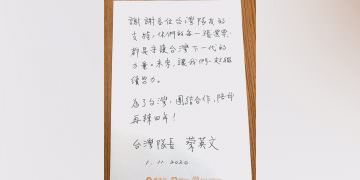 謝謝各位台灣隊友的
支持，你們的每一張選票，
都是守護台灣下一代的
力量。未來，讓我們一起繼
續努力。
為了台灣，團結合作，陪你
再辣四年！
台灣隊長 蔡英文
1.11.2020